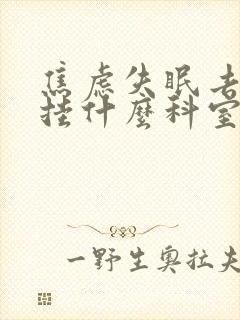 焦虑失眠去
挂什麼科室
一野生奥拉夫